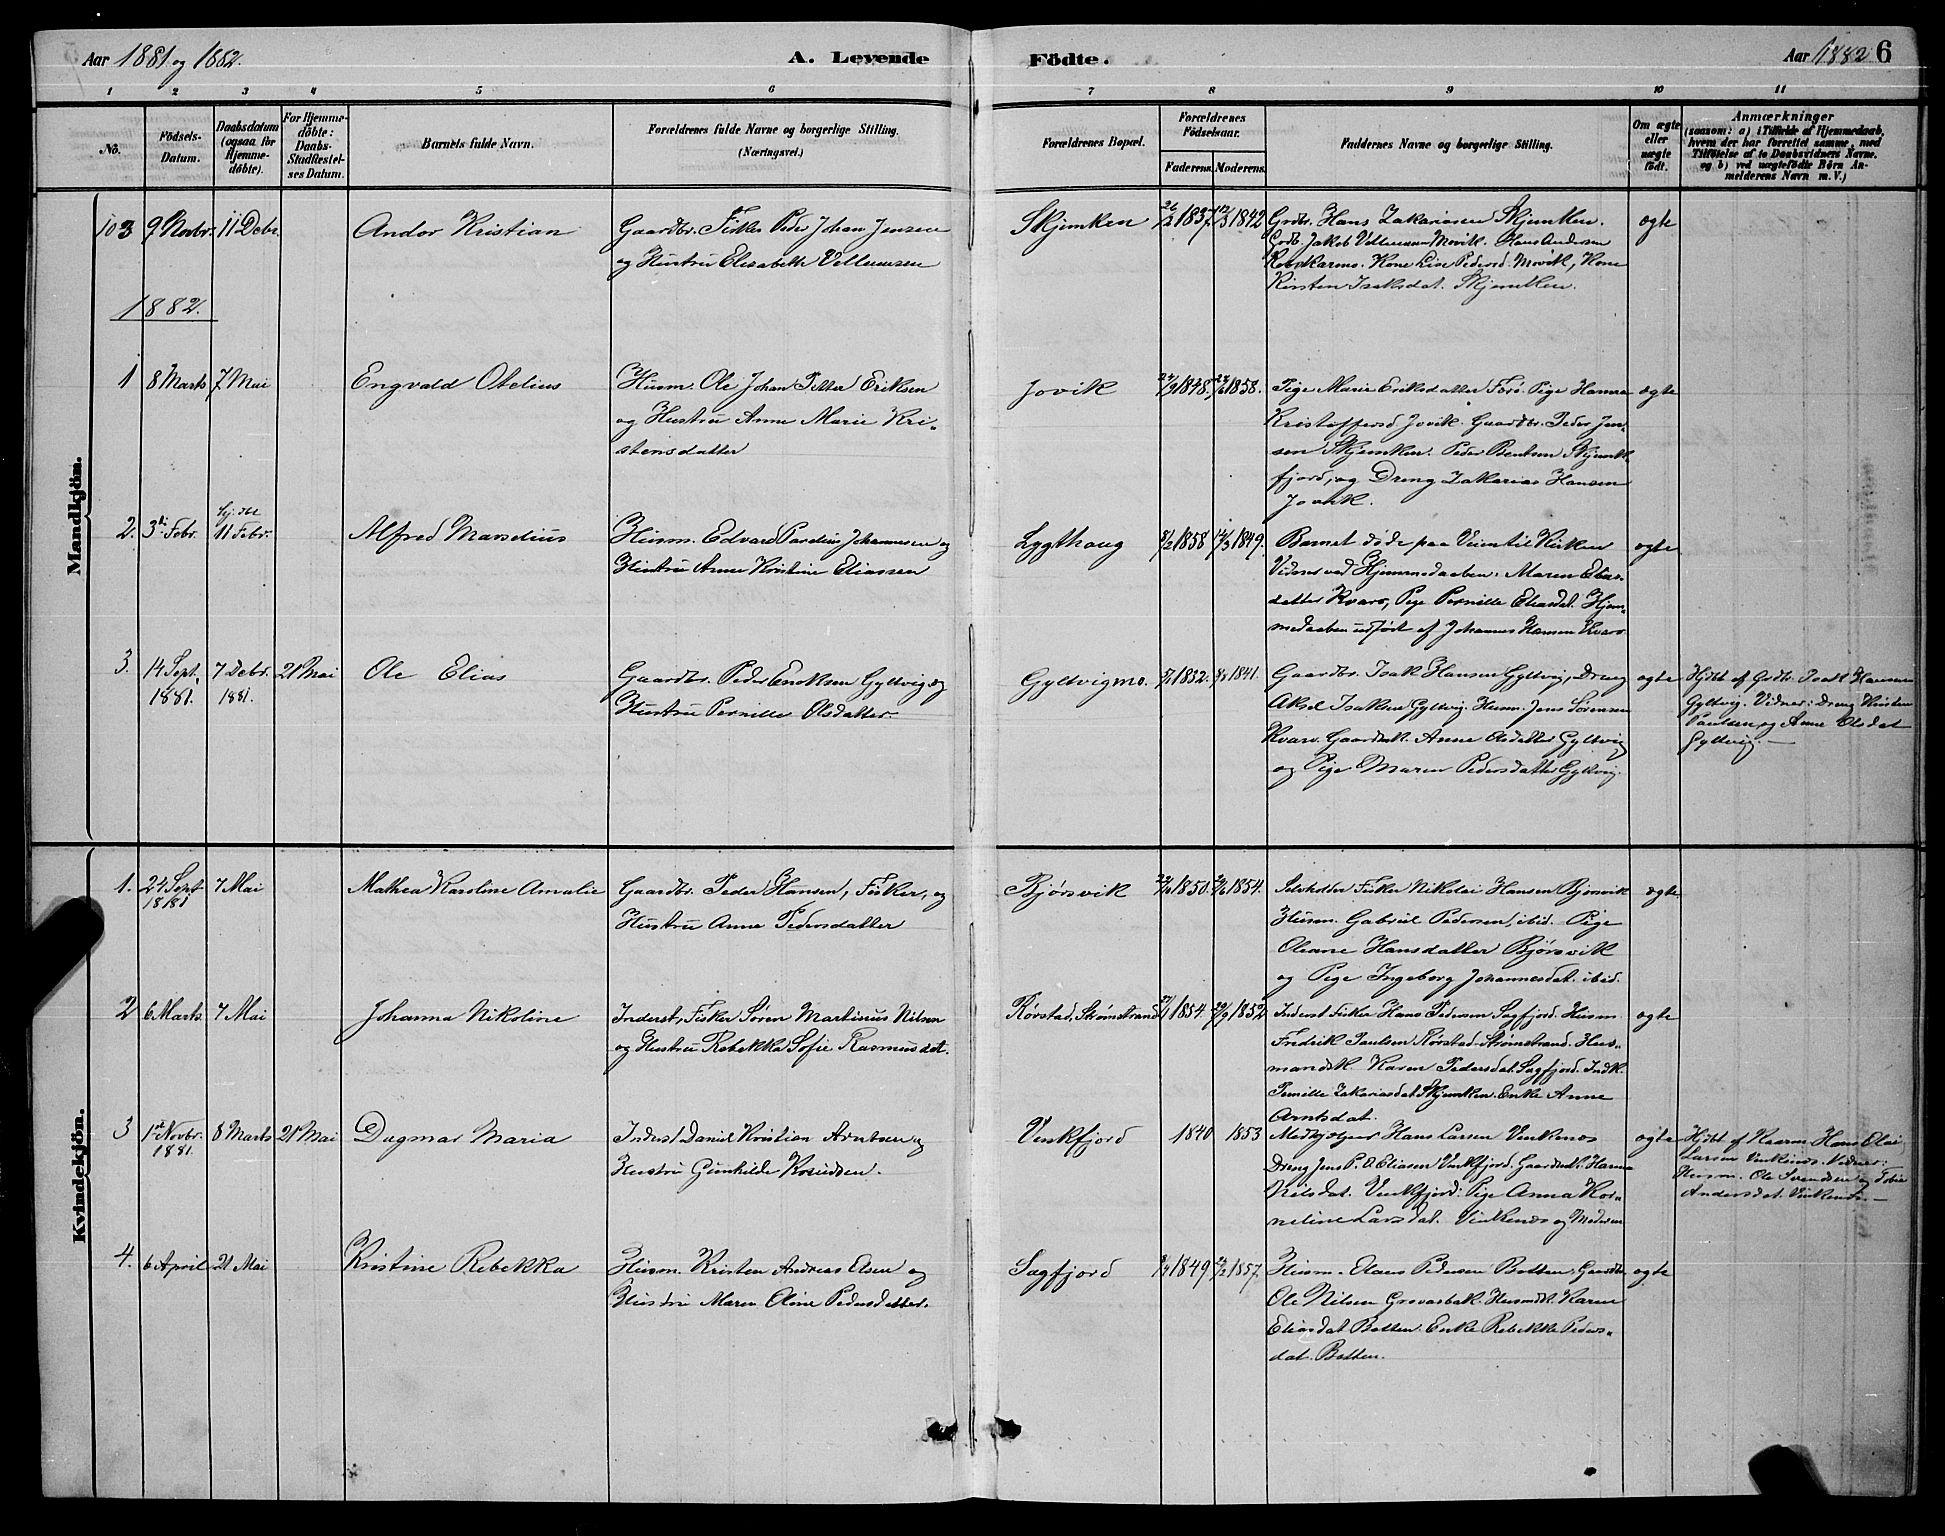 Aar 1881 og 1882.
A. Levende Födte.
Aar 1882 6
1 2 3 4 5 6 7 8 9 10 11
No.
Födsels-
Datum.
Daabsdatum
(ogsaa for
Hjemme-
döbte).
For Hjemme-
döbte:
Daabs-
Stadfæstel-
ses Datum.
Barnets fulde Navn.
Forældrenes fulde Navne og borgerlige Stilling.
(Næringsvei.)
Forældrenes Bopæl.
Forældrenes
Födselsaar.
Faderens. Moderens.
Faddernes Navne og borgerlige Stilling.
Om ægte
eller
uægte
født.
Anmærkninger
(saasom: a) i Tilfælde af Hjemmedaab,
hvem der har forrettet samme, med
Tilföielse af to Daabsvidners Navne,
og b) ved uægtefödte Börn An-
melderens Navn m. V.)
Mandkjön.
103 9 Novbr. 11 Debr. Andor Kristian
Gaardbr. Fisker Peder Johan Jensen
og Hustru Elisabeth Vellumsen
Skjemken 26/2 1837. 1842
Grdbr. Hans Zakariasen Skjemken.
Grdb. Jakob Vellumsen Movik. Hans Andersen
Kone Lise Pedersd. Movik, Kone
Kirsten Isaksdat. Skjemken.
ægte
1882.
1 8 Marts 7 Mai Engvald Otelius
Husm. Ole Johan Petter Eriksen
og Hustru Anne Marie Kri-
stensdatter
Jovik 1848. 1858.
Pige Marie Eriksdatter Forö. Pige Hanna
Kristoffersd Jovik. Gaardbr. Peder Jen-
sen Skjemken. Peder Bentsen Skjemk-
fjord, og Dreng Zakarias Hansen
Jovik.
ægte
2. 3die Febr. Hj.dbt 11 Febr. Alfred Marselius
Husm. Edvard Parelius Johannesen og
Hustru Anne Kristine Eliassen
Lygthaug 8/2 1858 1849.
Barnet döde paa Veien til Kirken
Vidner ved Hjemmedaaben: Maren Elias-
datter Kvarv, Pige Pernille Eliasdat. Hjem-
medaaben udfört af Johannes Hansen Kvarv
ægte
3. 14 Sept. 1881. 7 Debr. 1881. 21 Mai Ole Elias
Gaardbr. Peder Enoksen Gyltvig og
Hustru Pernille Olsdatter
Gyltvigmo. 1832. 1841.
Gaardbr. Isak Hansen Gyltvig, Dreng
Aksel Isaksen Gyltvig. Husm. Jens Sörensen
Kvarv. Gaardmk. Anne Olsdatter Gyltvig
og Pige Maren Pedersdatter Gyltvig.
ægte
Hjdbt af Grdbr. Isak Hansen
Gyltvig. Vidner: Dreng Kristen
Paulsen og Anne Olsdat
Gyltvig.
Kvindekjön.
1. 24 Sept 1881 7 Mai Mathea Karoline Amalie
Gaardbr. Peder Hansen, Fisker, og
Hustru Anne Pedersdatter
Bjørsvik 1850. 1854.
Fisker Nikolai Hansen Bjørsvik
Husm. Gabriel Pedersen, ibid. Pige
Oleane Hansdatter Bjørsvik
og Pige Ingeborg Johannesdat. ibid.
ægte
2 6 Marts 7 Mai Johanna Nikoline
Inderst, Fisker Søren Martinus Nilsen
og Hustru Rebekka Sofie Rasmusdat.
Rørstad, Strømstrand 1854. 1852
Inderst Fisker Hans Pedersen Sagfjord. Husm
Fredrik Paulsen Rørstad-Strømstrand. Hus-
mandsk. Karen Pedersdat. Sagfjord. Indk.
Pernille Zakariasdat Skjemken. Enke Anne
Arntsdat.
ægte
3 1ste Novbr. 1881. 8 Marts 21 Mai Dagmar Maria
Inderst Daniel Kristian Arntsen og
Hustru Gunhilde Knudsen.
Vinkfjord 1840 1853
Medhjælper Hans Larsen Vinkenæs
Dreng Jens P. A. Eliasen Vinkfjord. Gaardmk. Hanna
Nilsdat. Vinkfjord. Pige Anna Kor-
neline Larsdat. Vinkenæs og Moderen
ægte
Hjdbt af Hans Olai
Larsen Vinkenæs. Vidner:
Husm. Ole Svendsen og
Andersdat. Vinkenæs.
4. 6 April 21 Mai Kristine Rebekka
Husm. Kristen Andreas Olsen og
Hustru Maren Oline Pedersdatter.
Sagfjord 1849 1857.
Husm. Claus Pedersen Botten, Gaardbr.
Ole Nilsen Grovasbak. Husmdk. Karen
Eliasdat Botten. Enke Rebekka Peders-
dat. Botten.
ægte